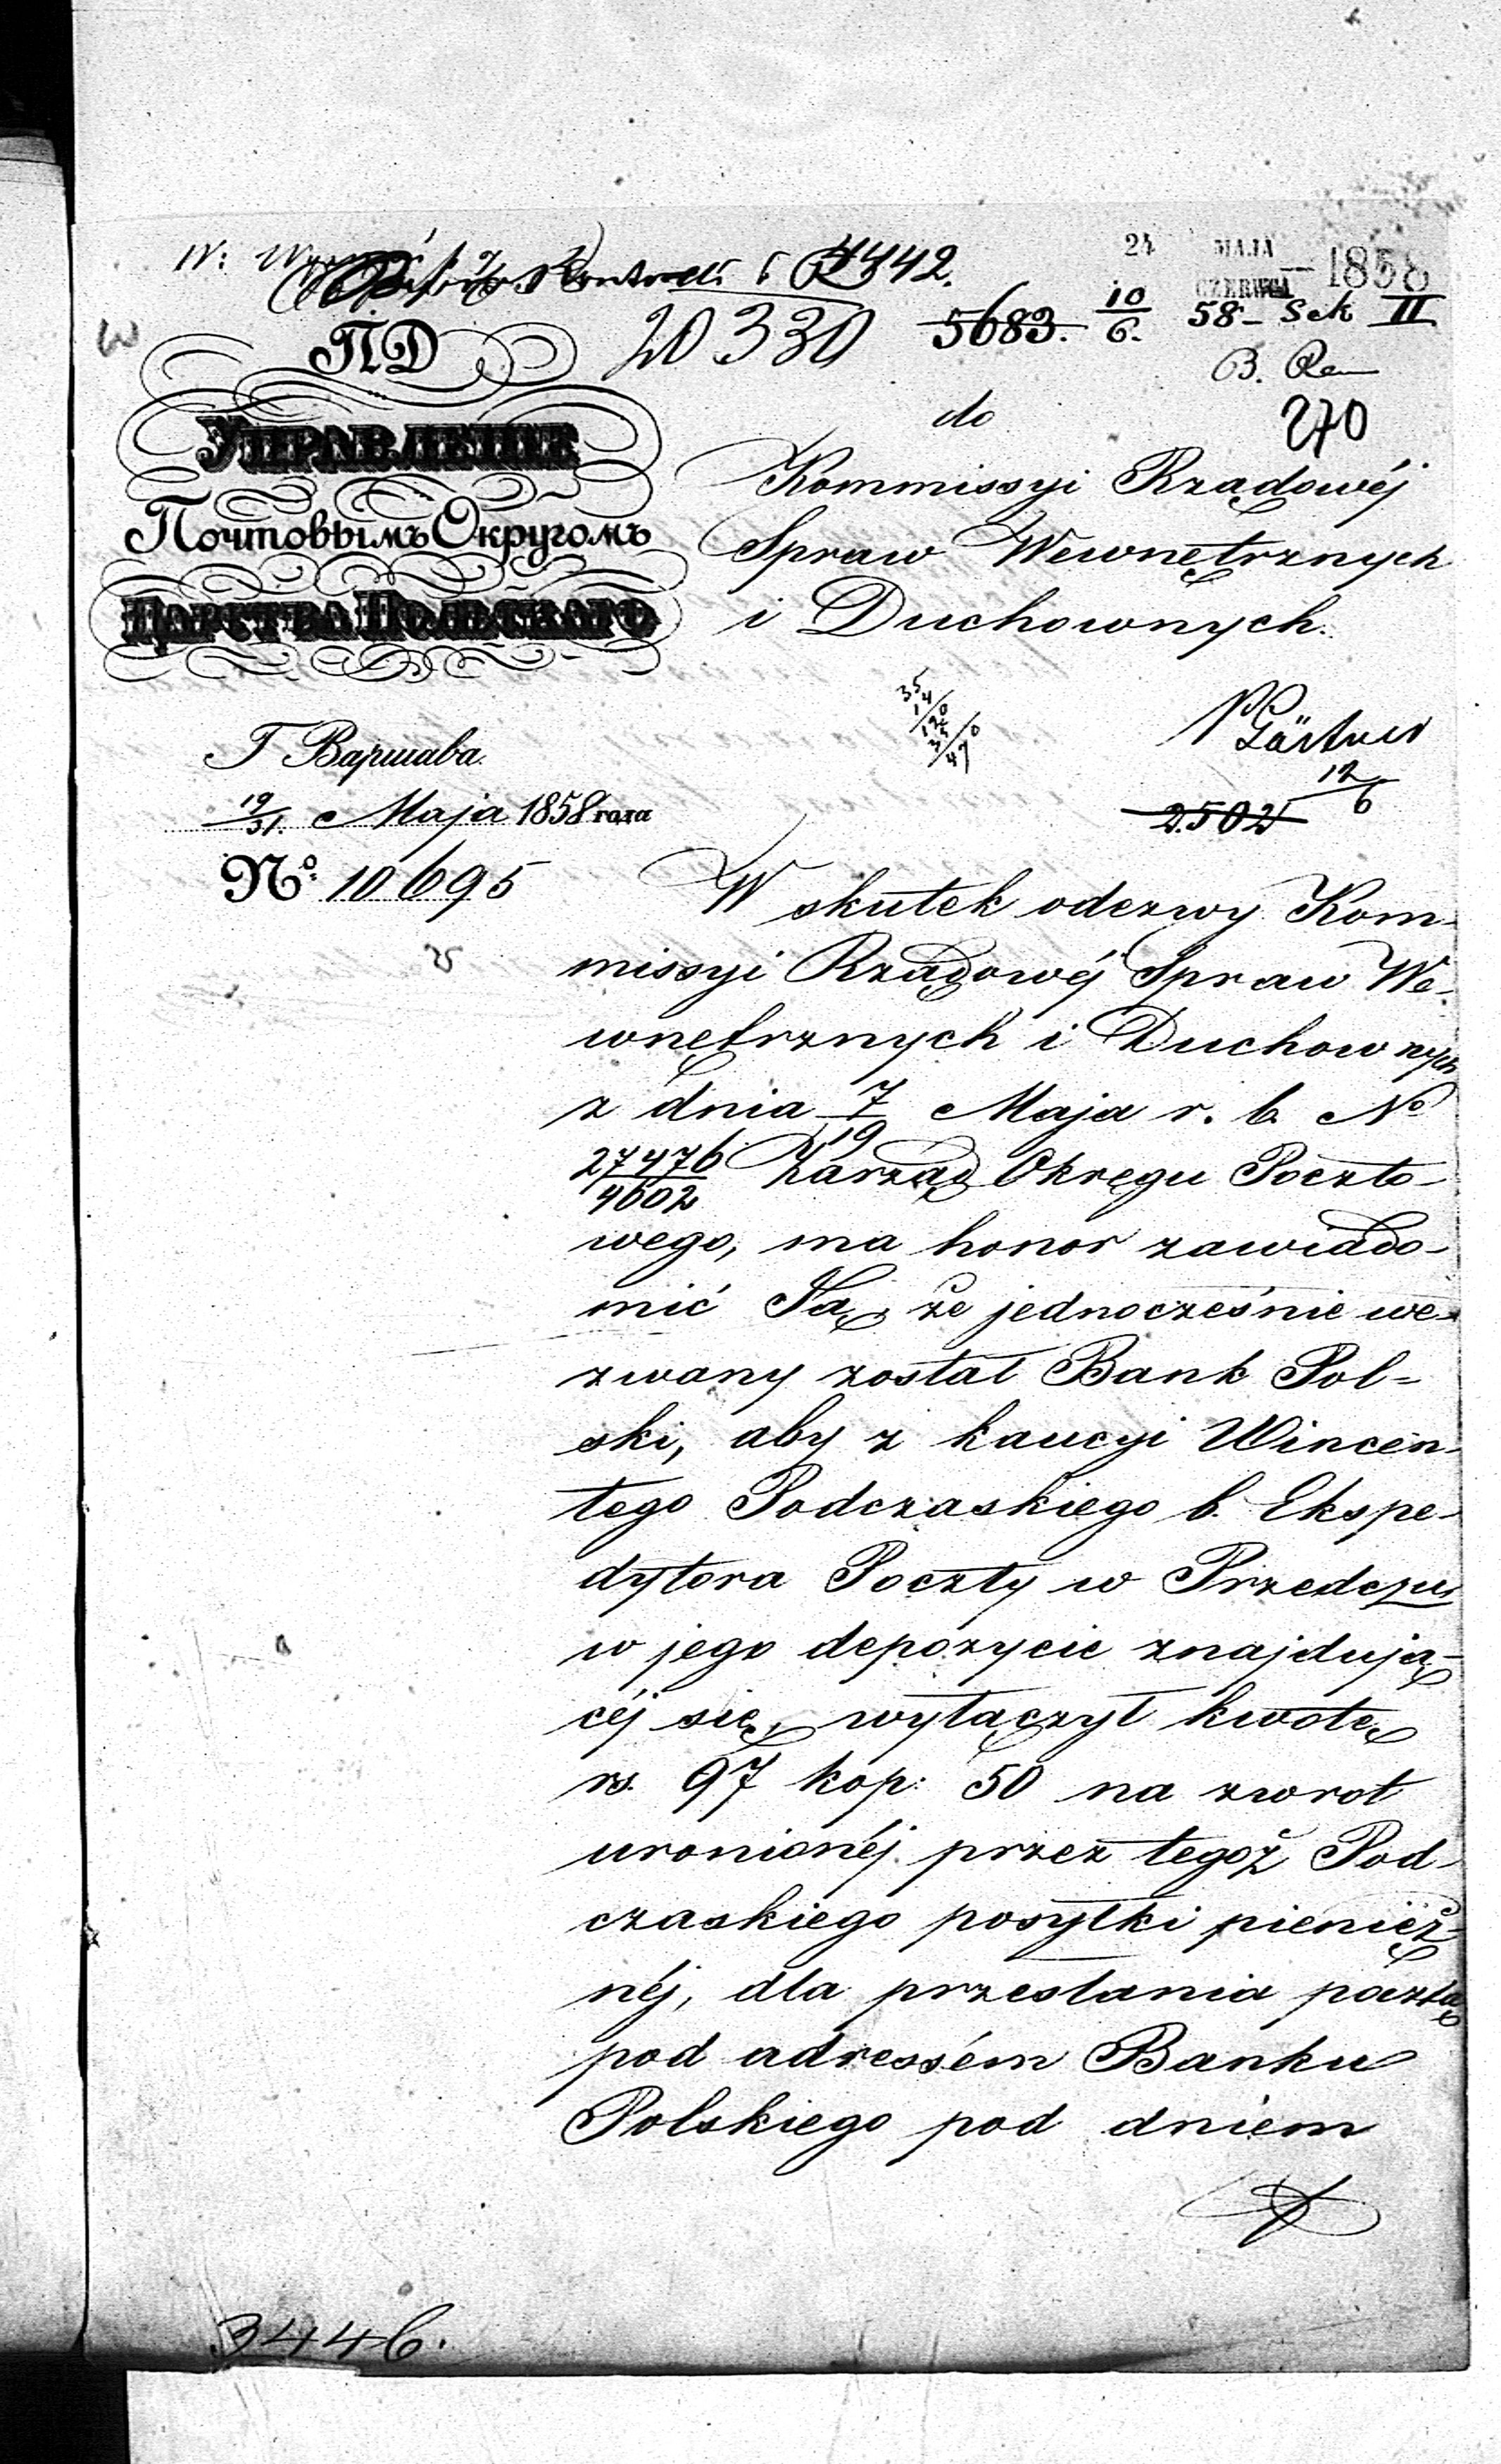 4442.
24 MAJA
CZERWCA — 1858
20330 5683. 10/6. 58 – Sek II
B.
270
ПД
Управление
Почтовымъ Округомъ
Царства Польскаго
do
Kommissyi Rządowéj
Spraw Wewnętrznych
i Duchownych.
Г Варшава.
19/31. Maja 1858 года
№ 10695
12/6
2502
W skutek odezwy Kom-
missyi Rządowéj Spraw We-
wnętrznych i Duchownych
z dnia 7/19 Maja r. b. No
27476/4602 Zarząd Okręgu Poczto-
wego, ma honor zawiado-
mić Ją, że jednocześnie we-
zwany został Bank Pol-
ski, aby z kaucyi Wincen-
tego Podczaskiego b. Ekspe-
dytora Poczty w Przedczu
w jego depozycie znajdują-
céj się, wyłączył kwotę
rs. 97 kop: 50 na zwrot
uronionéj przez tegoż Pod-
czaskiego posyłki pienięż-
néj, dla przesłania pocztą
pod adressém Banku
Polskiego pod dniem
3446.